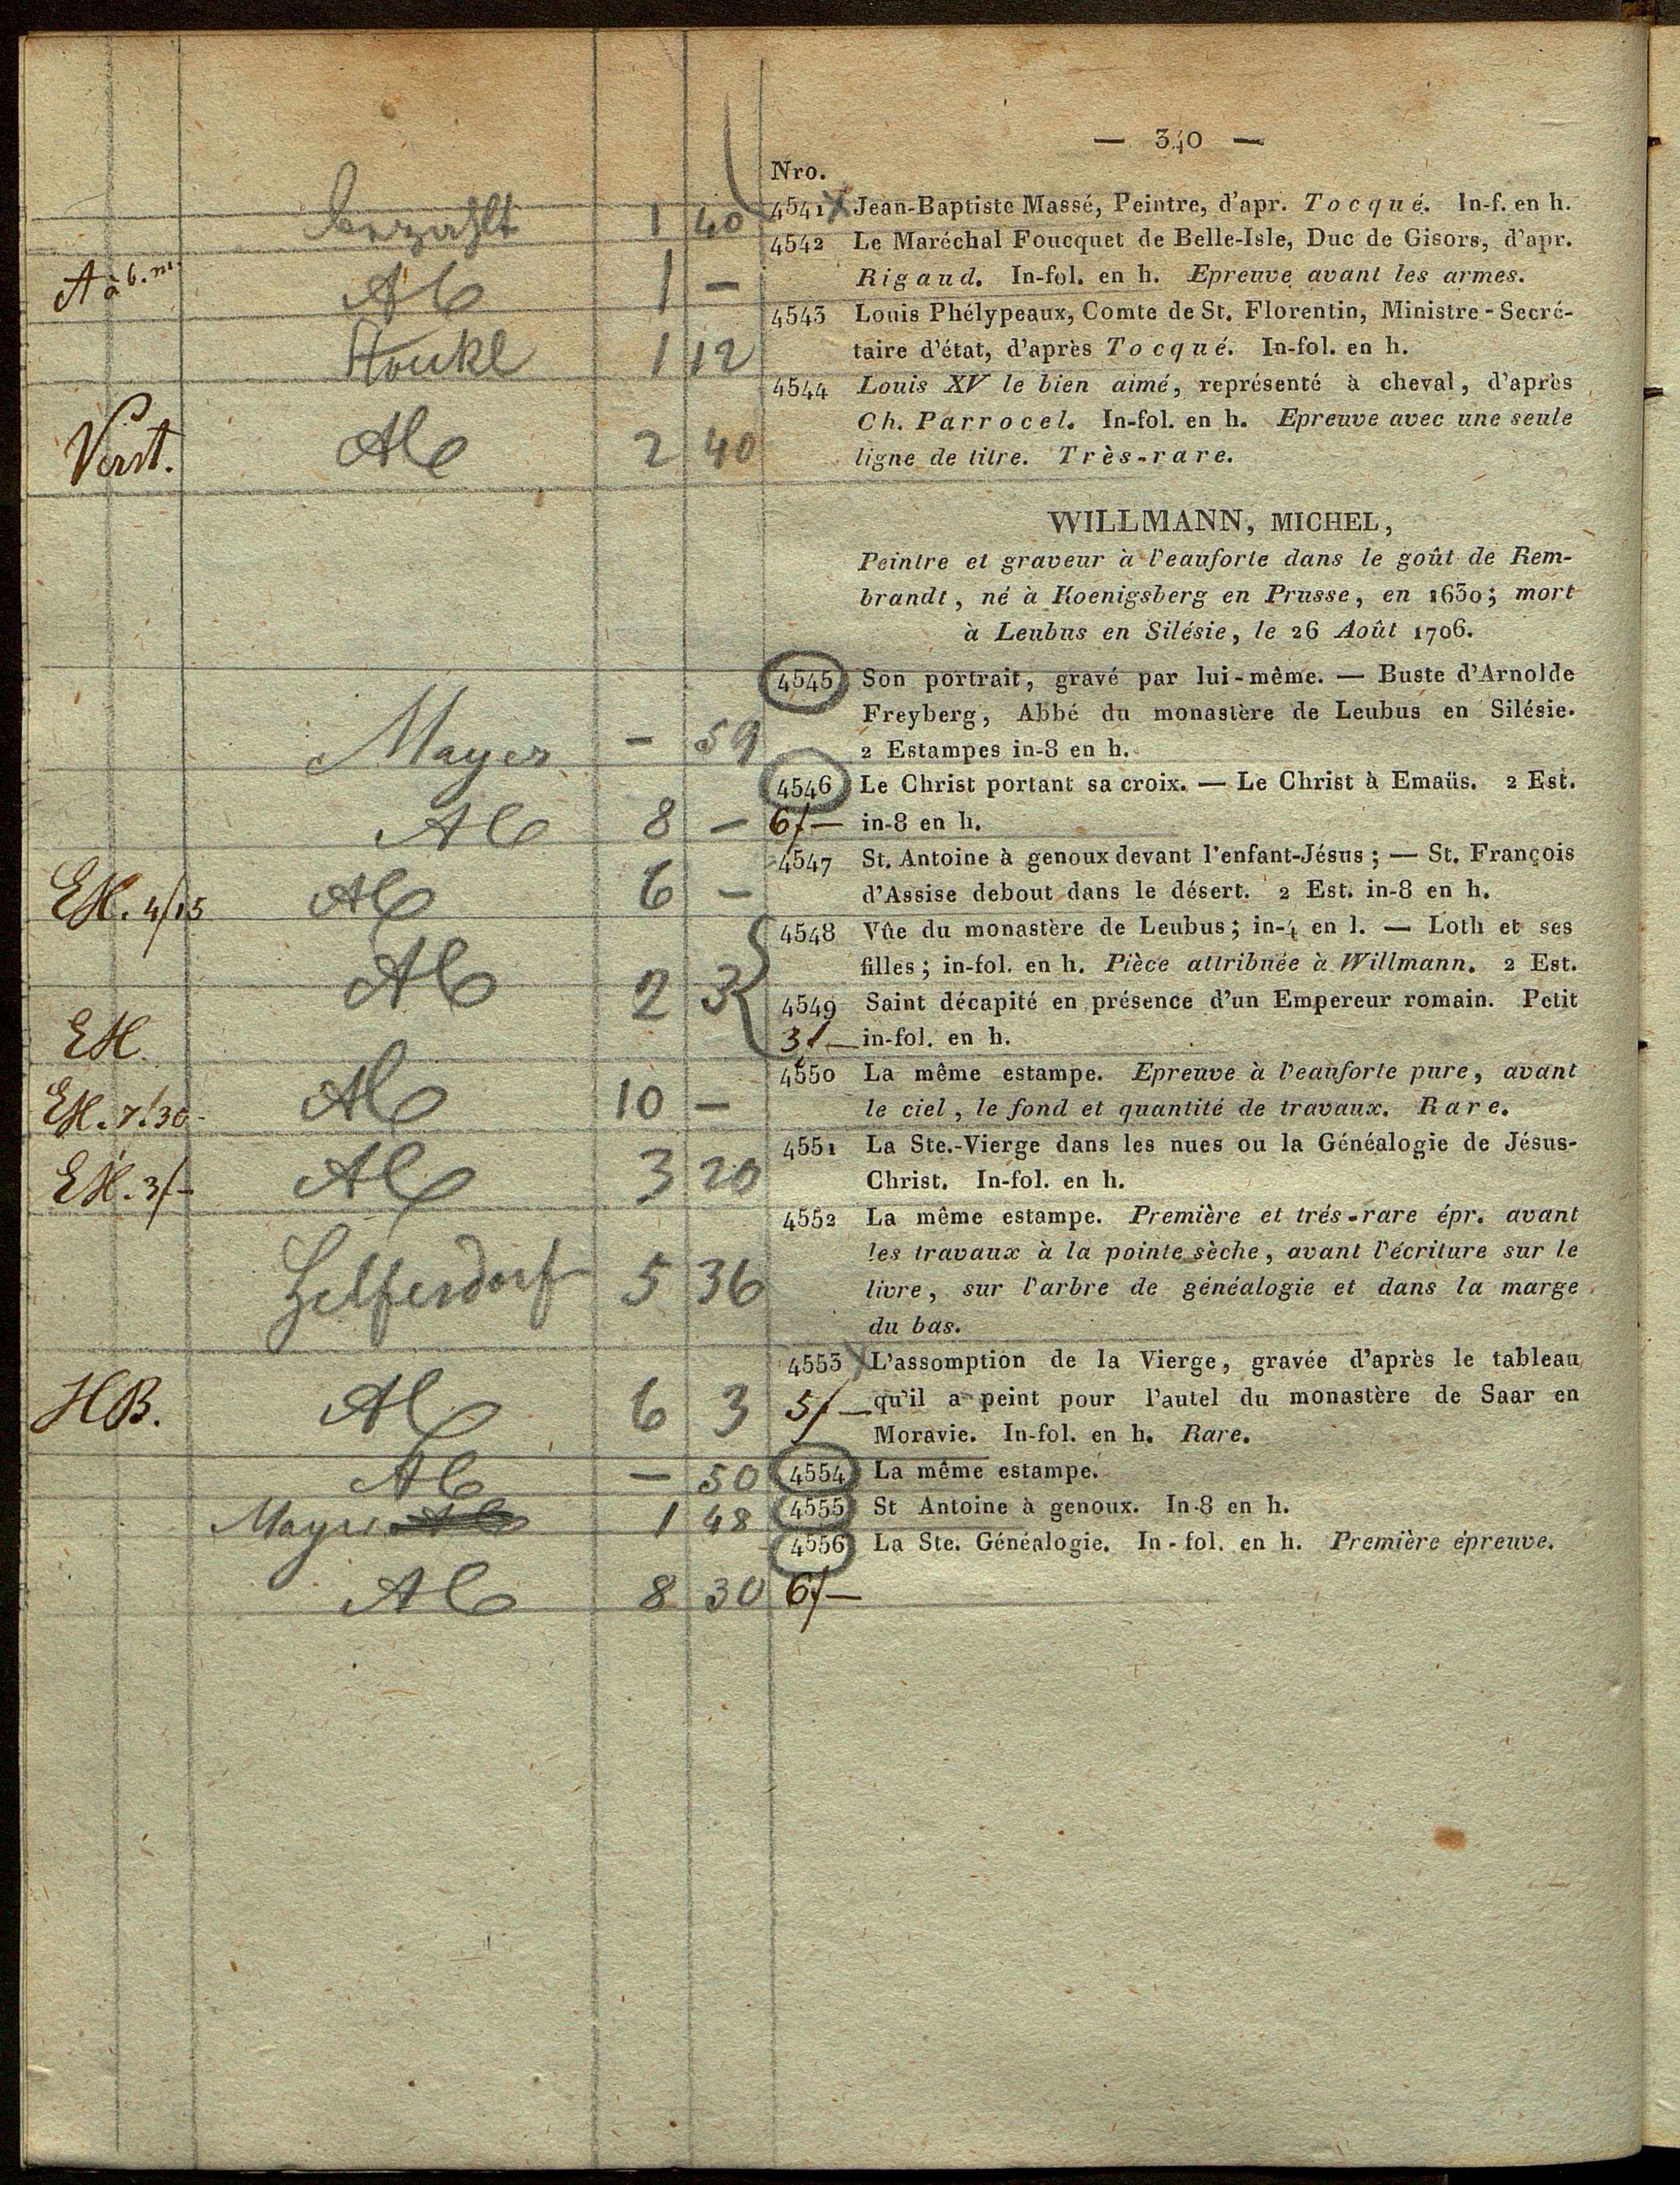 — 340 —
Nro.
bezahlt 1 40 4541 Jean-Baptiste Massé, Peintre, d'apr. Tocqué. In-f. en h.
4542 Le Maréchal Foucquet de Belle-Isle, Duc de Gisors, d'apr.
A à b. m. Alb 1 — Rigaud. In-fol. en h. Epreuve avant les armes.
4543 Louis Phélypeaux, Comte de St. Florentin, Ministre-Secré-
1 12 taire d'état, d'après Tocqué. In-fol. en h.
4544 Louis XV le bien aimé, représenté à cheval, d'après
Ch. Parrocel. In-fol. en h. Epreuve avec une seule
Verst. Alb 2 40 ligne de titre. Très-rare.
WILLMANN, MICHEL,
Peintre et graveur à l'eauforte dans le goût de Rem-
brandt, né à Koenigsberg en Prusse, en 1630; mort
à Leubus en Silésie, le 26 Août 1706.
4545 Son portrait, gravé par lui-même. — Buste d'Arnolde
Freyberg, Abbé du monastère de Leubus en Silésie.
Mayer — 59 2 Estampes in-8 en h.
4546 Le Christ portant sa croix. — Le Christ à Emaüs. 2 Est.
Alb 8 — 6f— in-8 en h.
4547 St. Antoine à genoux devant l'enfant-Jésus; — St. François
EH. 4/15 Alb 6 — d'Assise debout dans le désert. 2 Est. in-8 en h.
4548 Vûe du monastère de Leubus; in-4 en l. — Loth et ses
filles; in-fol. en h. Pièce attribuée à Willmann. 2 Est.
Alb 2 3 4549 Saint décapité en présence d'un Empereur romain. Petit
EH. 3f— in-fol. en h.
4550 La même estampe. Epreuve à l'eauforte pure, avant
EH. 7.30 Alb 10 — le ciel, le fond et quantité de travaux. Rare.
4551 La Ste.-Vierge dans les nues ou la Généalogie de Jésus-
EH. 3f— Alb 3 20 Christ. In-fol. en h.
4552 La même estampe. Première et trés-rare épr. avant
les travaux à la pointe sèche, avant l'écriture sur le
Helfersdorf 5 36 livre, sur l'arbre de généalogie et dans la marge
du bas.
4553 L'assomption de la Vierge, gravée d'après le tableau
HB. Alb 6 3 5f— qu'il a peint pour l'autel du monastère de Saar en
Moravie. In-fol. en h. Rare.
Alb — 50 4554 La même estampe.
Mayer 1 48 4555 St Antoine à genoux. In-8 en h.
4556 La Ste. Généalogie. In-fol. en h. Première épreuve.
Alb 8 30 6f—